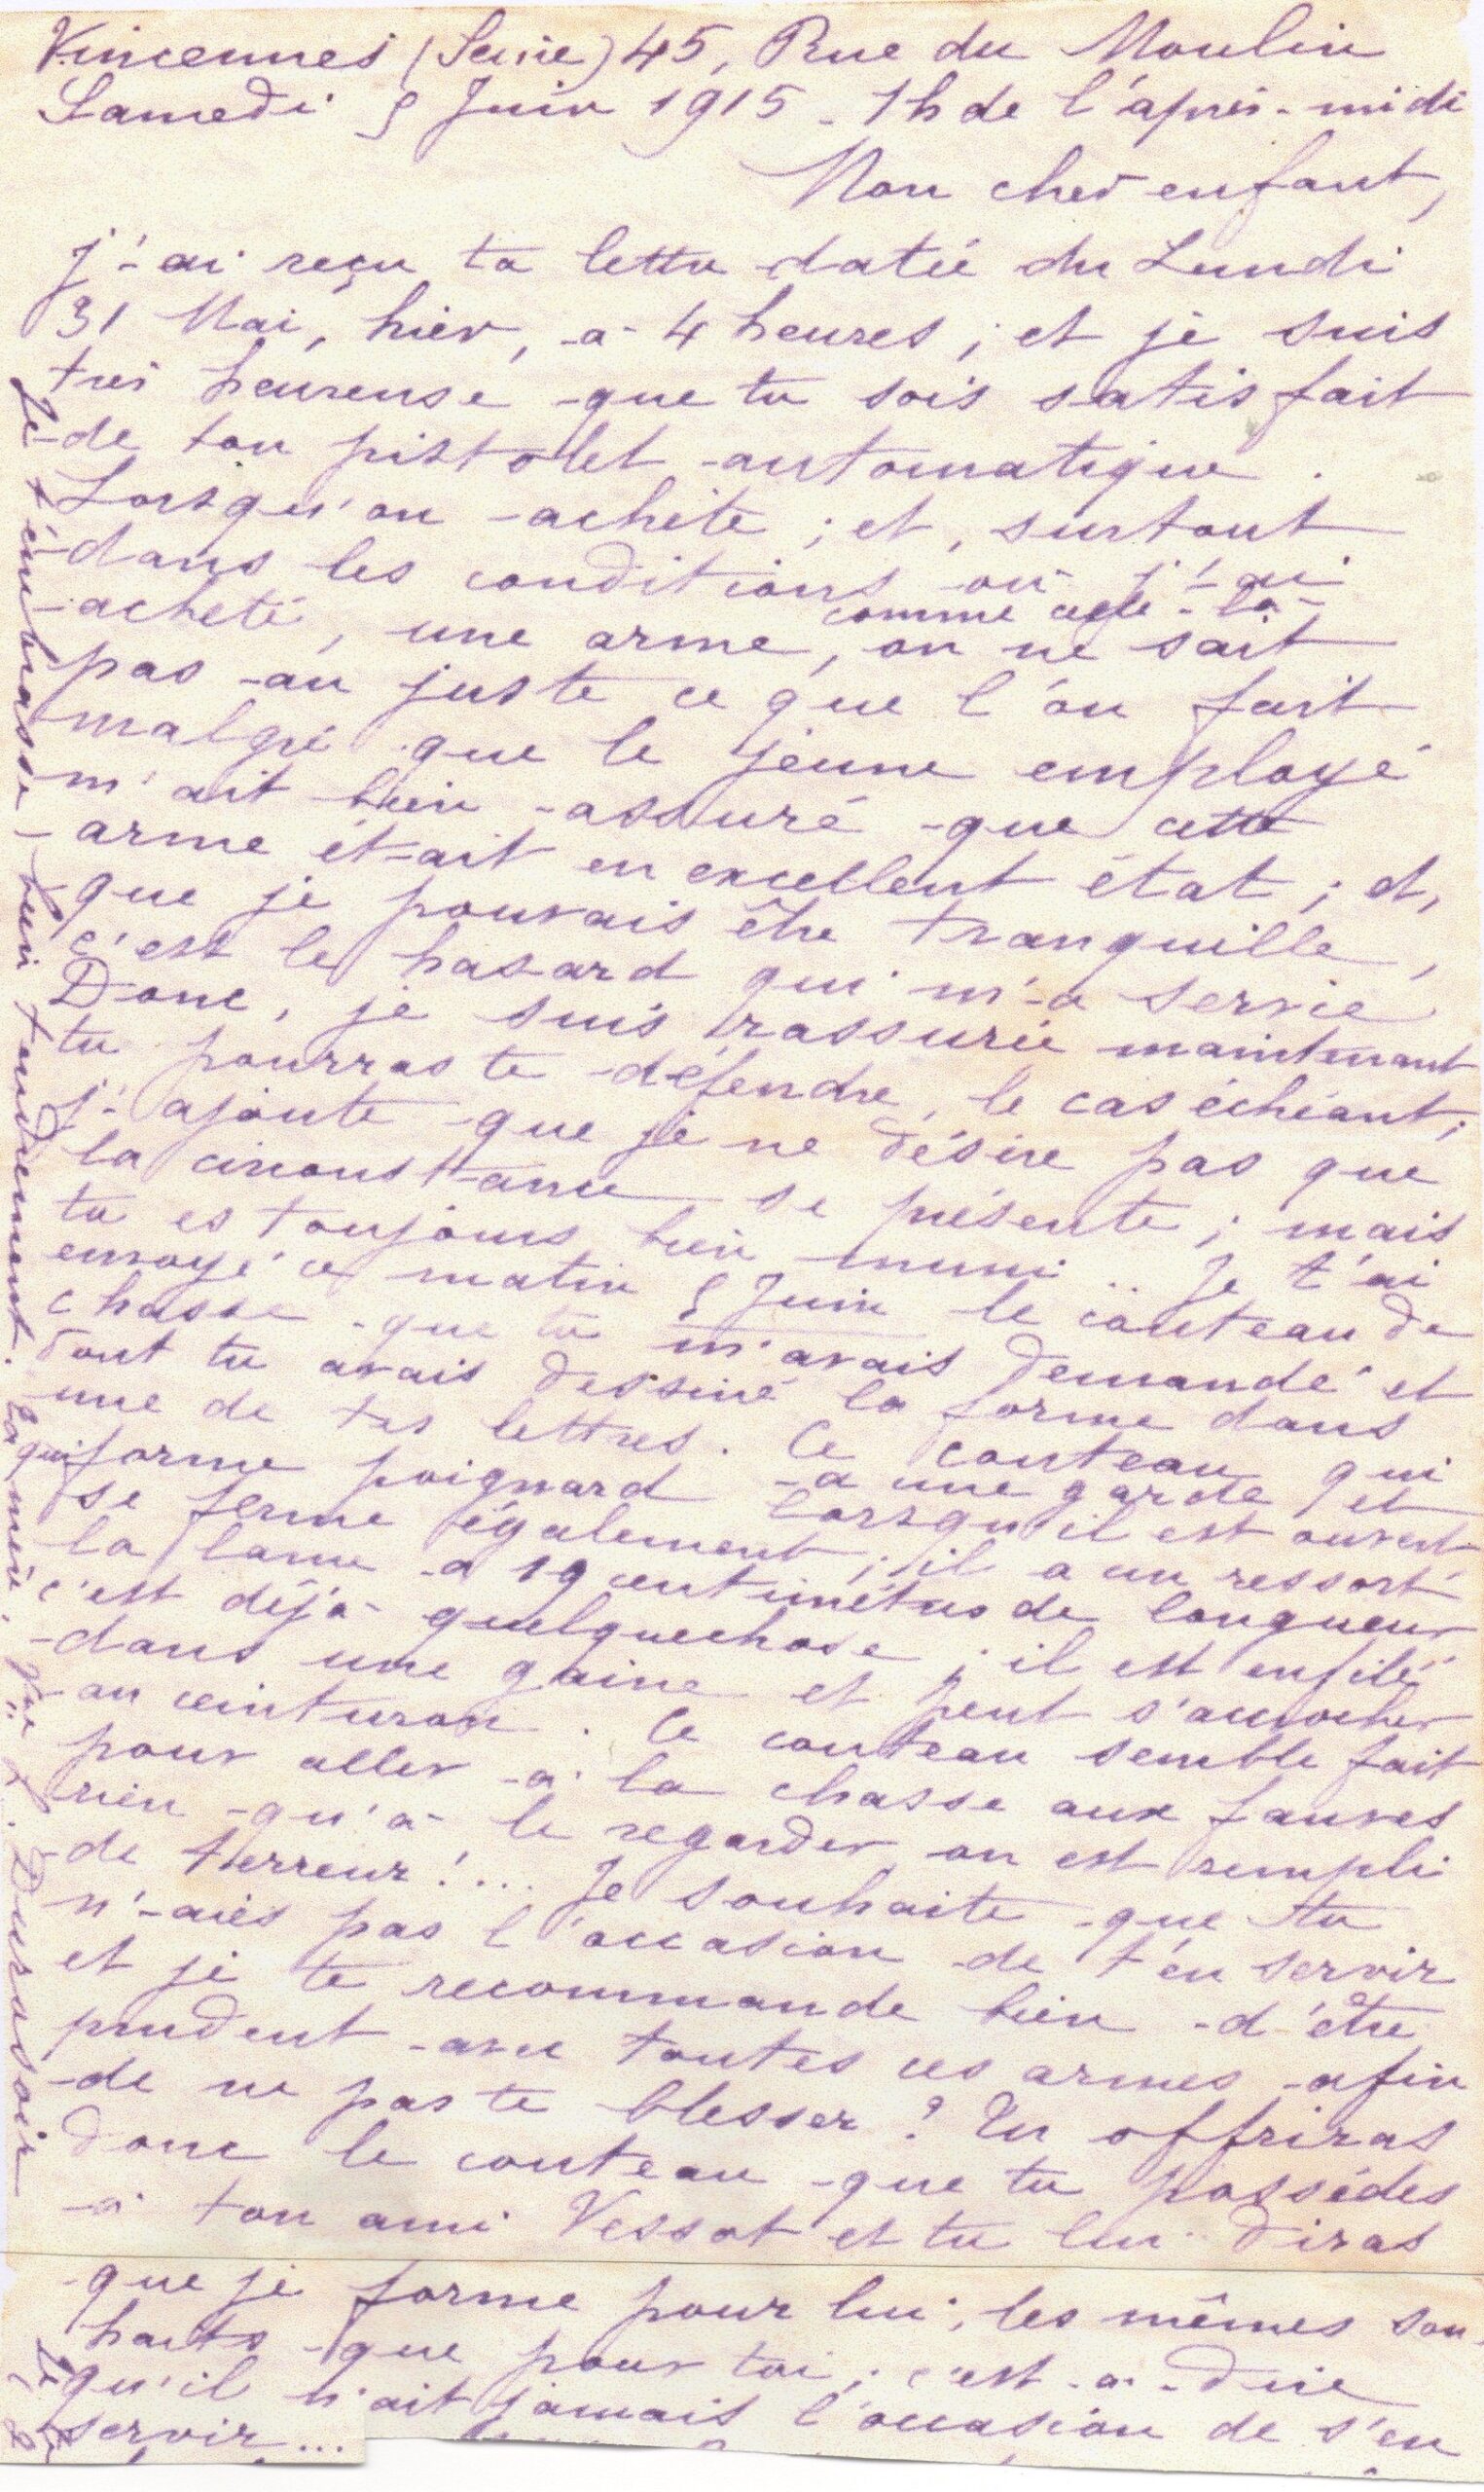 Vincennes (Seine) 45, Rue du Moulin
Samedi 5 Juin 1915 - 1h de l'après-midi
Mon cher enfant,
j'ai reçu ta lettre datée du Lundi
31 Mai, hier, à 4 heures ; et je suis
très heureuse que tu sois satisfait
de ton pistolet automatique.
Lorsqu'on achète ; et, surtout
dans les conditions où j'ai
acheté, une arme comme celle-là, on ne sait
pas au juste ce que l'on fait
malgré que le jeune employé
m'ait bien assuré que cette
arme était en excellent état ; et,
que je pouvais être tranquille,
c'est le hasard qui m'a servie
Donc, je suis rassurée maintenant
tu pourras te défendre, le cas échéant ;
j'ajoute que je ne désire pas que
la circonstance se présente ; mais
tu es toujours bien muni .. Je t'ai
envoyé ce matin 5 Juin le couteau de
chasse que tu m'avais demandé et
dont tu avais dessiné la forme dans
une de tes lettres. Ce couteau qui
forme poignard a une garde et
qui se ferme également ; lorsqu'il est ouvert
il a un ressort
la lame a 19 centimètres de longueur
c'est déjà quelquechose ; il est enfilé
dans une gaine et peut s'accrocher
au ceinturon. Ce couteau semble fait
pour aller à la chasse aux fauves
rien qu'à le regarder on est rempli
de terreur !.... Je souhaite que tu
n'aies pas l'occasion de t'en servir
et je te recommande bien d'être
prudent avec toutes ces armes afin
de ne pas te blesser ? Tu offriras
donc le couteau que tu possèdes
à ton ami Vessot et tu lui diras
que je forme pour lui, les mêmes sou-
haits que pour toi ; c'est-à-dire
qu'il n'ait jamais l'occasion de s'en
servir...
Je t'embrasse bien tendrement. Ta mère, Durassoir